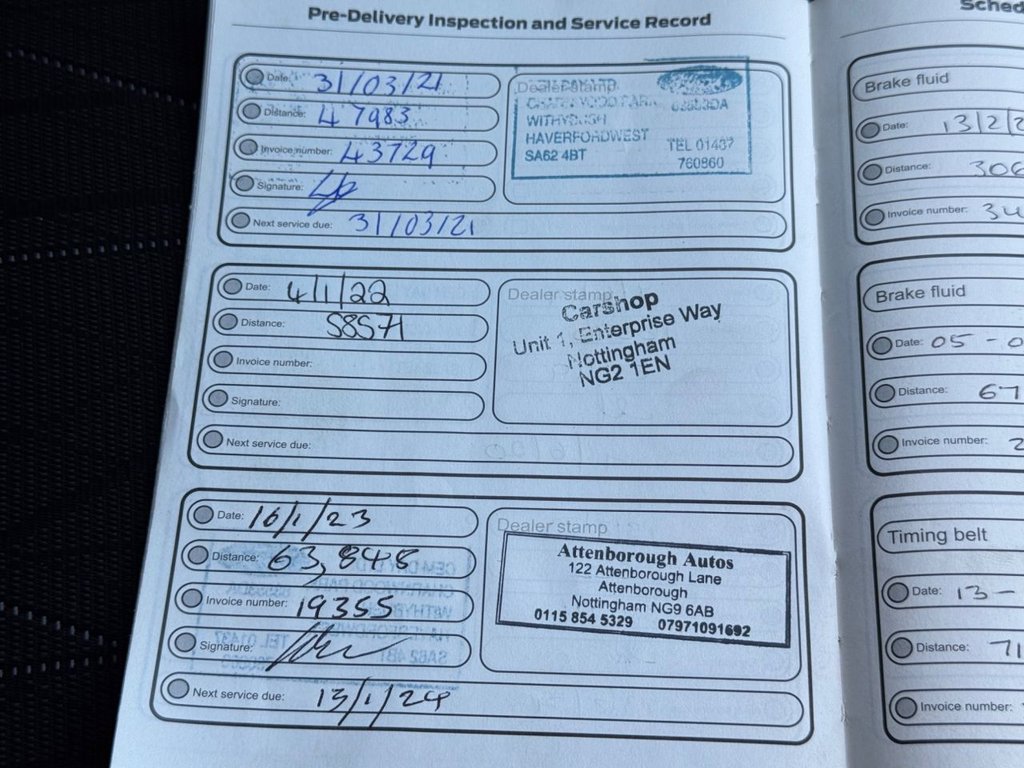 Pre-Delivery Inspection and Service Record
Date: 31/03/21
Distance: 47983
Invoice number: 43729
Signature:
Next service due: 31/03/21
Dealer stamp
WITHYBUSH
HAVERFORDWEST
SA62 4BT
TEL 01437
760860
Date: 4/1/22
Distance: 58571
Invoice number:
Signature:
Next service due:
Dealer stamp
Carshop
Unit 1, Enterprise Way
Nottingham
NG2 1EN
Date: 16/1/23
Distance: 63,848
Invoice number: 19355
Signature:
Next service due: 13/1/24
Dealer stamp
Attenborough Autos
122 Attenborough Lane
Attenborough
Nottingham NG9 6AB
0115 854 5329 07971091692
Sched
Brake fluid
Date: 13/2/2
Distance: 306
Invoice number: 34
Brake fluid
Date: 05-0
Distance: 67
Invoice number: 2
Timing belt
Date: 13-
Distance: 71
Invoice number: